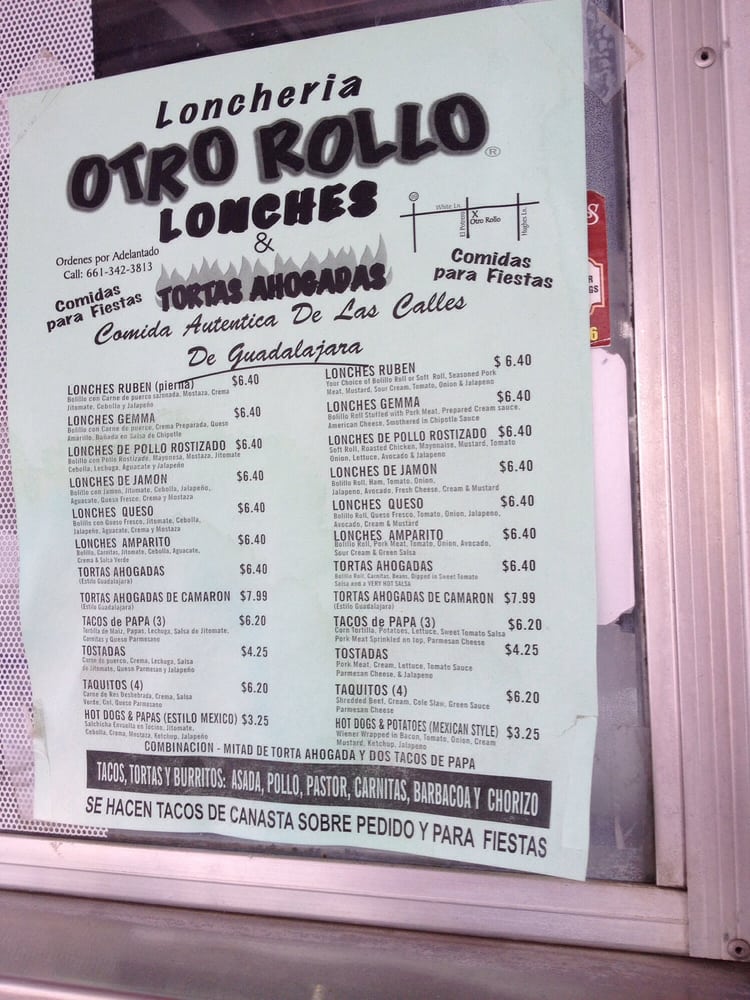 Loncheria
OTRO ROLLO ®
LONCHES
&
TORTAS AHOGADAS
Ordenes por Adelantado
Call: 661-342-3813
Comidas
para Fiestas
White Ln.
El Potrero
X
Otro Rollo
Hughes Ln.
Comidas
para Fiestas
Comida Autentica De Las Calles
De Guadalajara
LONCHES RUBEN (pierna) $6.40
Bolillo con Carne de puerco sazonada, Mostaza, Crema
Jitomate, Cebolla y Jalapeño
LONCHES GEMMA $6.40
Bolillo con Carne de puerco, Crema Preparada, Queso
Amarillo, Bañada en Salsa de Chipotle
LONCHES DE POLLO ROSTIZADO $6.40
Bolillo con Pollo Rostizado, Mayonesa, Mostaza, Jitomate
Cebolla, Lechuga, Aguacate y Jalapeño
LONCHES DE JAMON $6.40
Bolillo con Jamon, Jitomate, Cebolla, Jalapeño,
Aguacate, Queso Fresco, Crema y Mostaza
LONCHES QUESO $6.40
Bolillo con Queso Fresco, Jitomate, Cebolla,
Jalapeño, Aguacate, Crema y Mostaza
LONCHES AMPARITO $6.40
Bolillo, Carnitas, Jitomate, Cebolla, Aguacate,
Crema & Salsa Verde
TORTAS AHOGADAS $6.40
(Estilo Guadalajara)
TORTAS AHOGADAS DE CAMARON $7.99
(Estilo Guadalajara)
TACOS de PAPA (3) $6.20
Tortilla de Maiz, Papas, Lechuga, Salsa de Jitomate,
Carnitas y Queso Parmesano
TOSTADAS $4.25
Carne de puerco, Crema, Lechuga, Salsa
de Jitomate, Queso Parmesan y Jalapeño
TAQUITOS (4) $6.20
Carne de Res Deshebrada, Crema, Salsa
Verde, Col, Queso Parmesano
HOT DOGS & PAPAS (ESTILO MEXICO) $3.25
Salchicha Envuelta en Tocino, Jitomate,
Cebolla, Crema, Mostaza, Ketchup, Jalapeño
LONCHES RUBEN $6.40
Your Choice of Bolillo Roll or Soft Roll, Seasoned Pork
Meat, Mustard, Sour Cream, Tomato, Onion & Jalapeno
LONCHES GEMMA $6.40
Bolillo Roll Stuffed with Pork Meat, Prepared Cream sauce,
American Cheese, Smothered in Chipotle Sauce
LONCHES DE POLLO ROSTIZADO $6.40
Soft Roll, Roasted Chicken, Mayonnaise, Mustard, Tomato
Onion, Lettuce, Avocado & Jalapeno
LONCHES DE JAMON $6.40
Bolillo Roll, Ham, Tomato, Onion,
Jalapeno, Avocado, Fresh Cheese, Cream & Mustard
LONCHES QUESO $6.40
Bolillo Roll, Queso Fresco, Tomato, Onion, Jalapeno,
Avocado, Cream & Mustard
LONCHES AMPARITO $6.40
Bolillo Roll, Pork Meat, Tomato, Onion, Avocado,
Sour Cream & Green Salsa
TORTAS AHOGADAS $6.40
Bolillo Roll, Carnitas, Beans, Dipped in Sweet Tomato
Salsa and a VERY HOT SALSA
TORTAS AHOGADAS DE CAMARON $7.99
(Estilo Guadalajara)
TACOS de PAPA (3) $6.20
Corn Tortilla, Potatoes, Lettuce, Sweet Tomato Salsa
Pork Meat Sprinkled on top, Parmesan Cheese
TOSTADAS $4.25
Pork Meat, Cream, Lettuce, Tomato Sauce
Parmesan Cheese, & Jalapeno
TAQUITOS (4) $6.20
Shredded Beef, Cream, Cole Slaw, Green Sauce
Parmesan Cheese
HOT DOGS & POTATOES (MEXICAN STYLE) $3.25
Wiener Wrapped in Bacon, Tomato, Onion, Cream
Mustard, Ketchup, Jalapeno
COMBINACION - MITAD DE TORTA AHOGADA Y DOS TACOS DE PAPA
TACOS, TORTAS Y BURRITOS: ASADA, POLLO, PASTOR, CARNITAS, BARBACOA Y CHORIZO
SE HACEN TACOS DE CANASTA SOBRE PEDIDO Y PARA FIESTAS